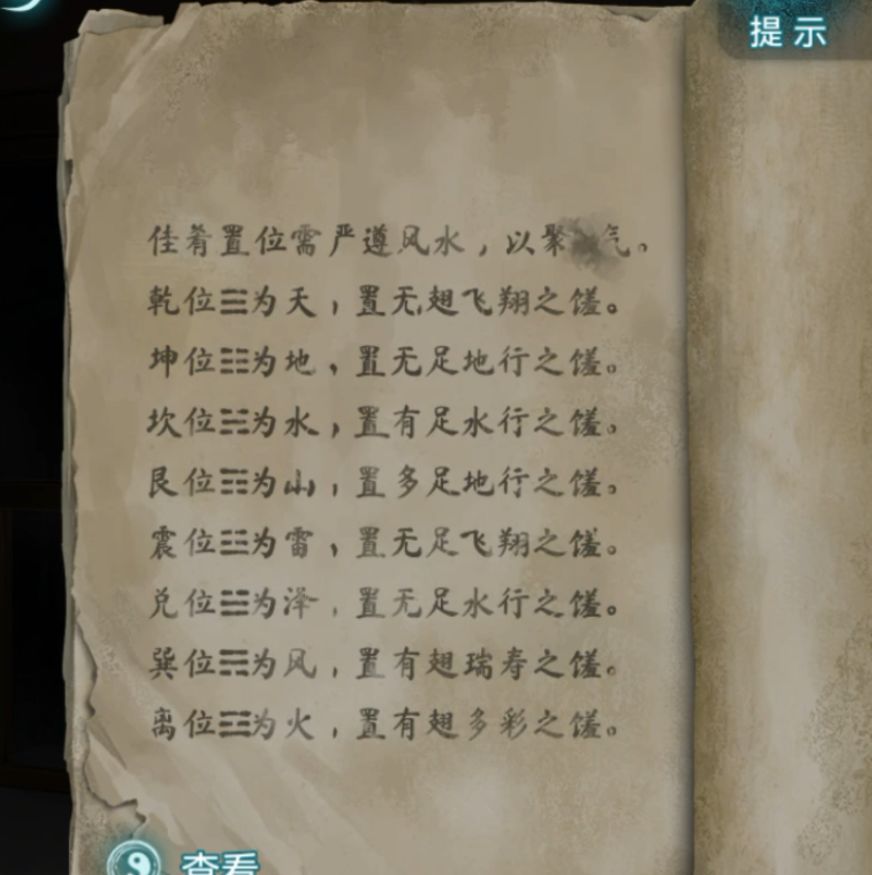 提示
佳肴置位需严遵风水，以聚气。
乾位☰为天，置无翅飞翔之馐。
坤位☷为地，置无足地行之馐。
坎位☵为水，置有足水行之馐。
艮位☶为山，置多足地行之馐。
震位☳为雷，置无足飞翔之馐。
兑位☱为泽，置无足水行之馐。
巽位☴为风，置有翅瑞寿之馐。
离位☲为火，置有翅多彩之馐。
查看